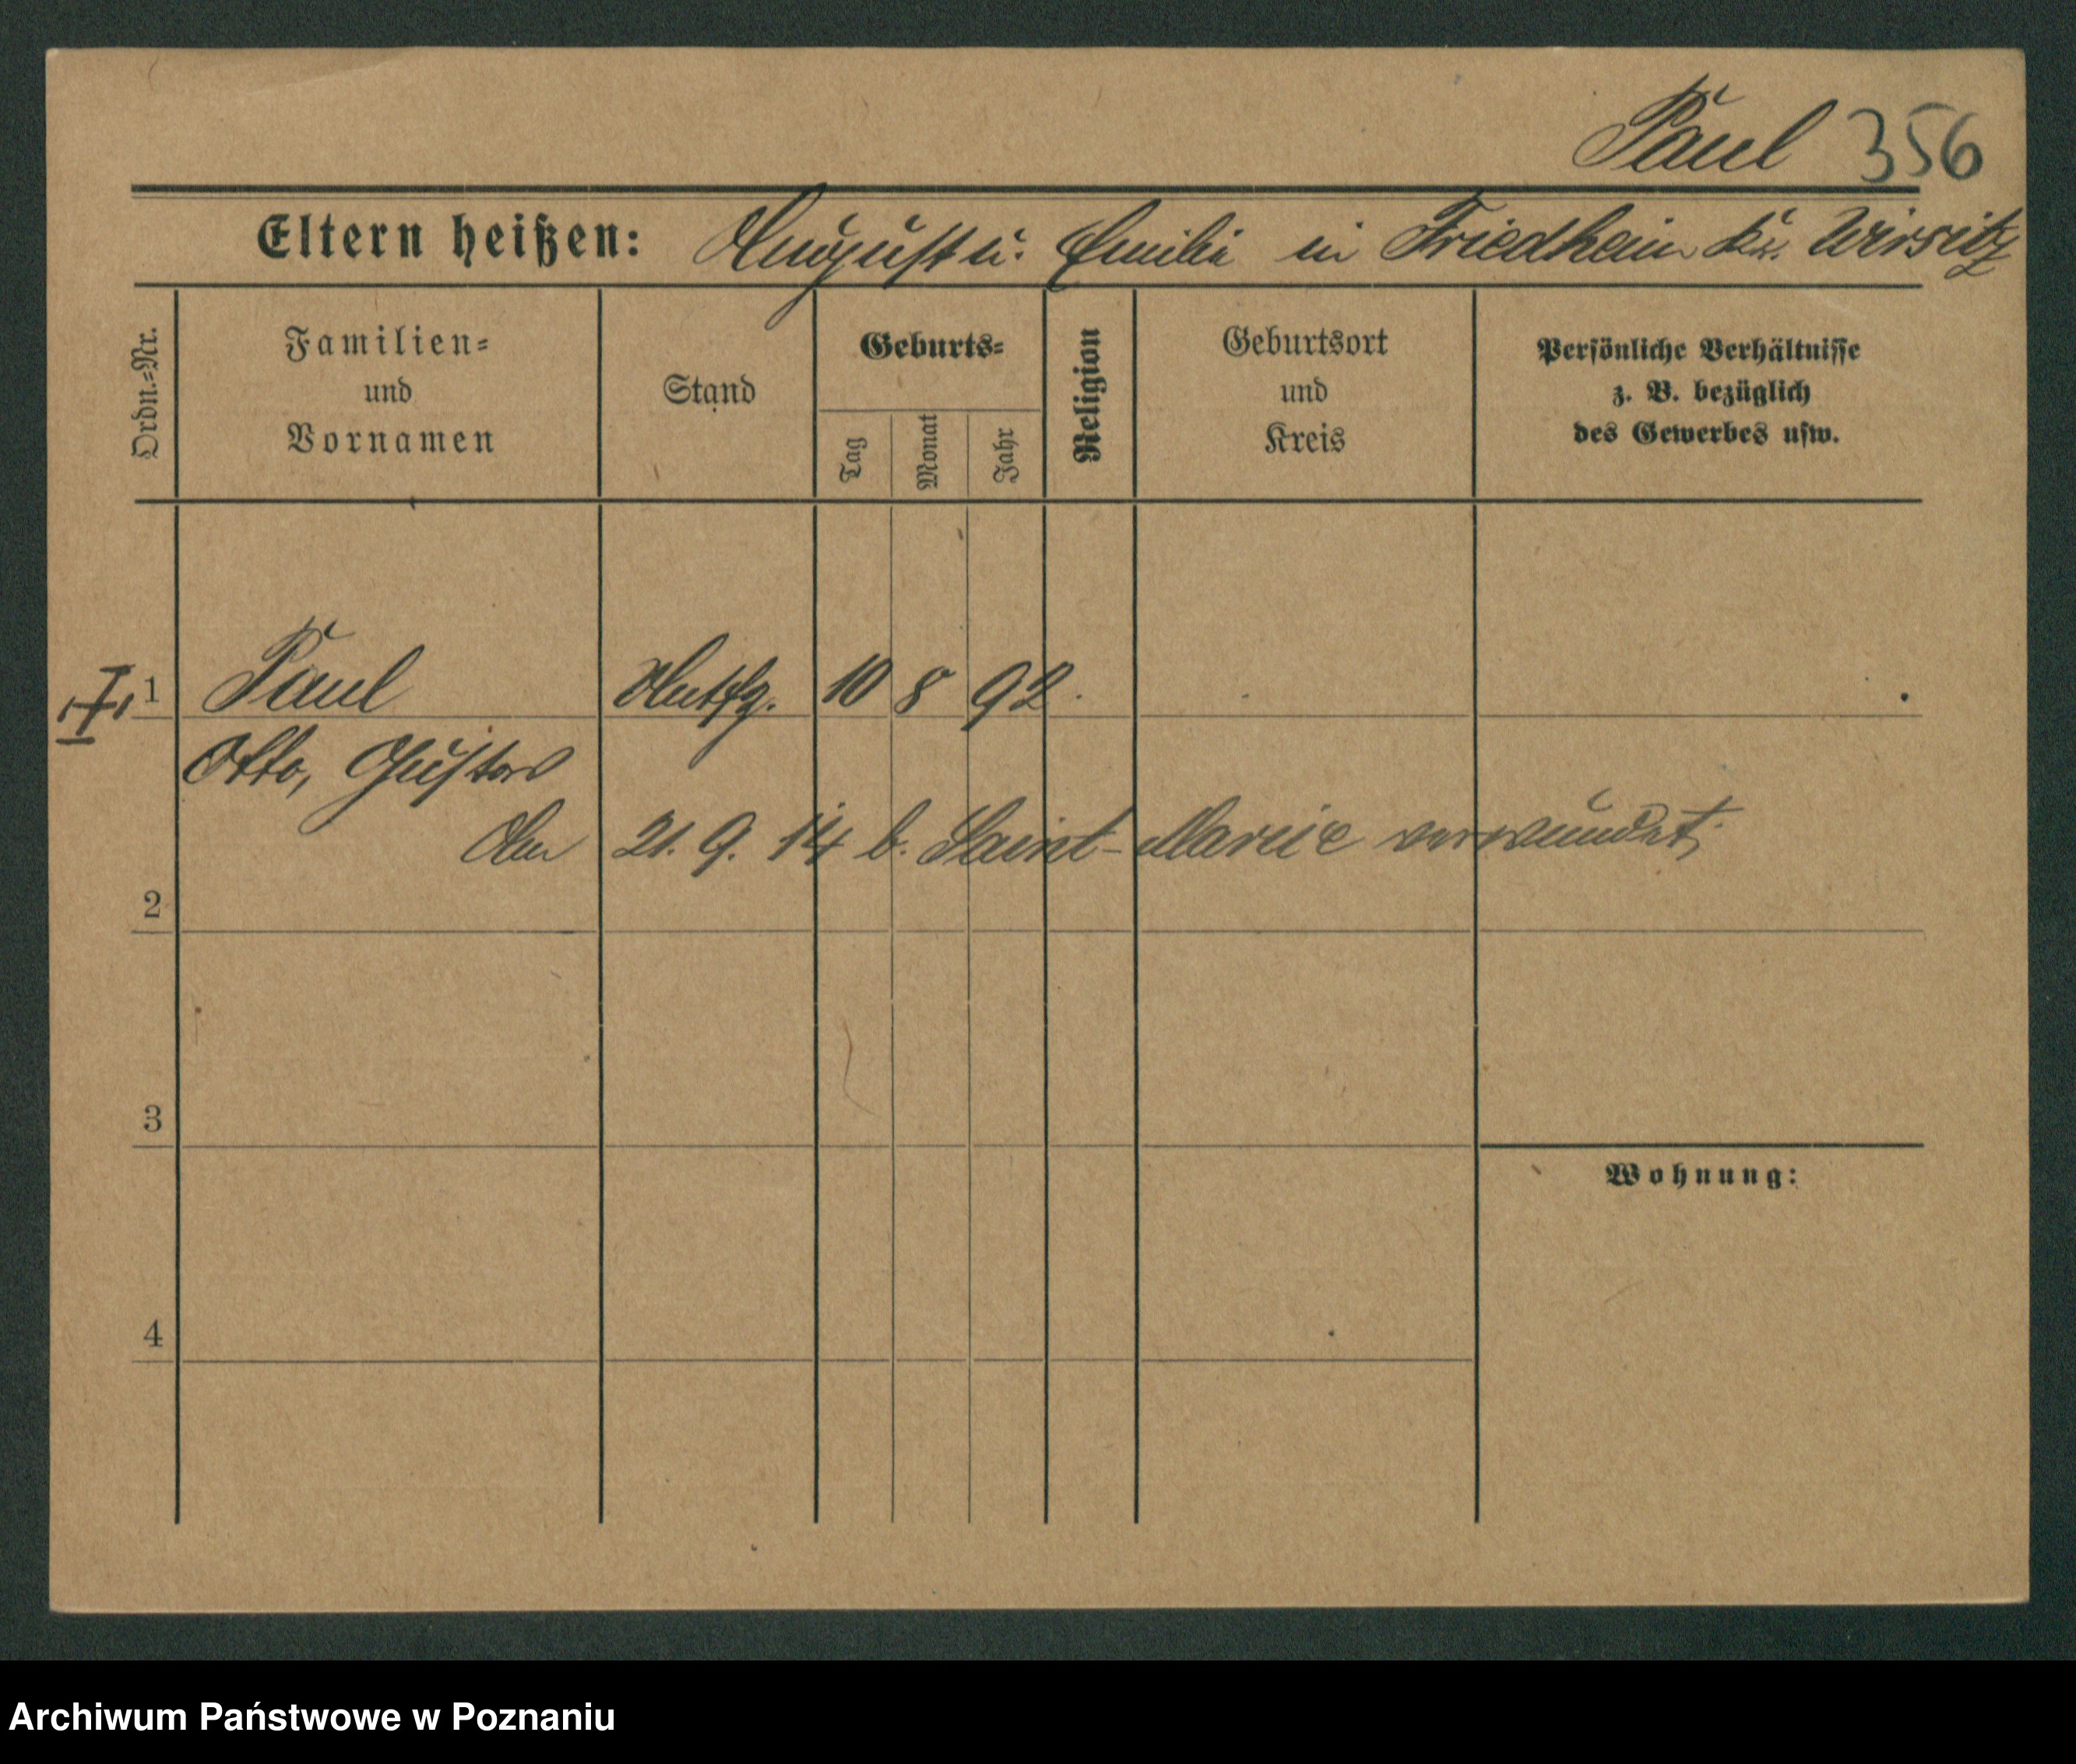 Paul 356
Eltern heißen: August u. Emilie in Friedheim Kr. Wirsitz
Ordn.=Nr.
Familien=
und
Vornamen
Stand
Geburts=
Tag
Monat
Jahr
Religion
Geburtsort
und
Kreis
Persönliche Verhältnisse
z. B. bezüglich
des Gewerbes usw.
1 Paul 10 8 92.
Otto, Gustav
Am 21. 9. 14 b. Saint- verwundet;
2
3
Wohnung:
4
Archiwum Państwowe w Poznaniu